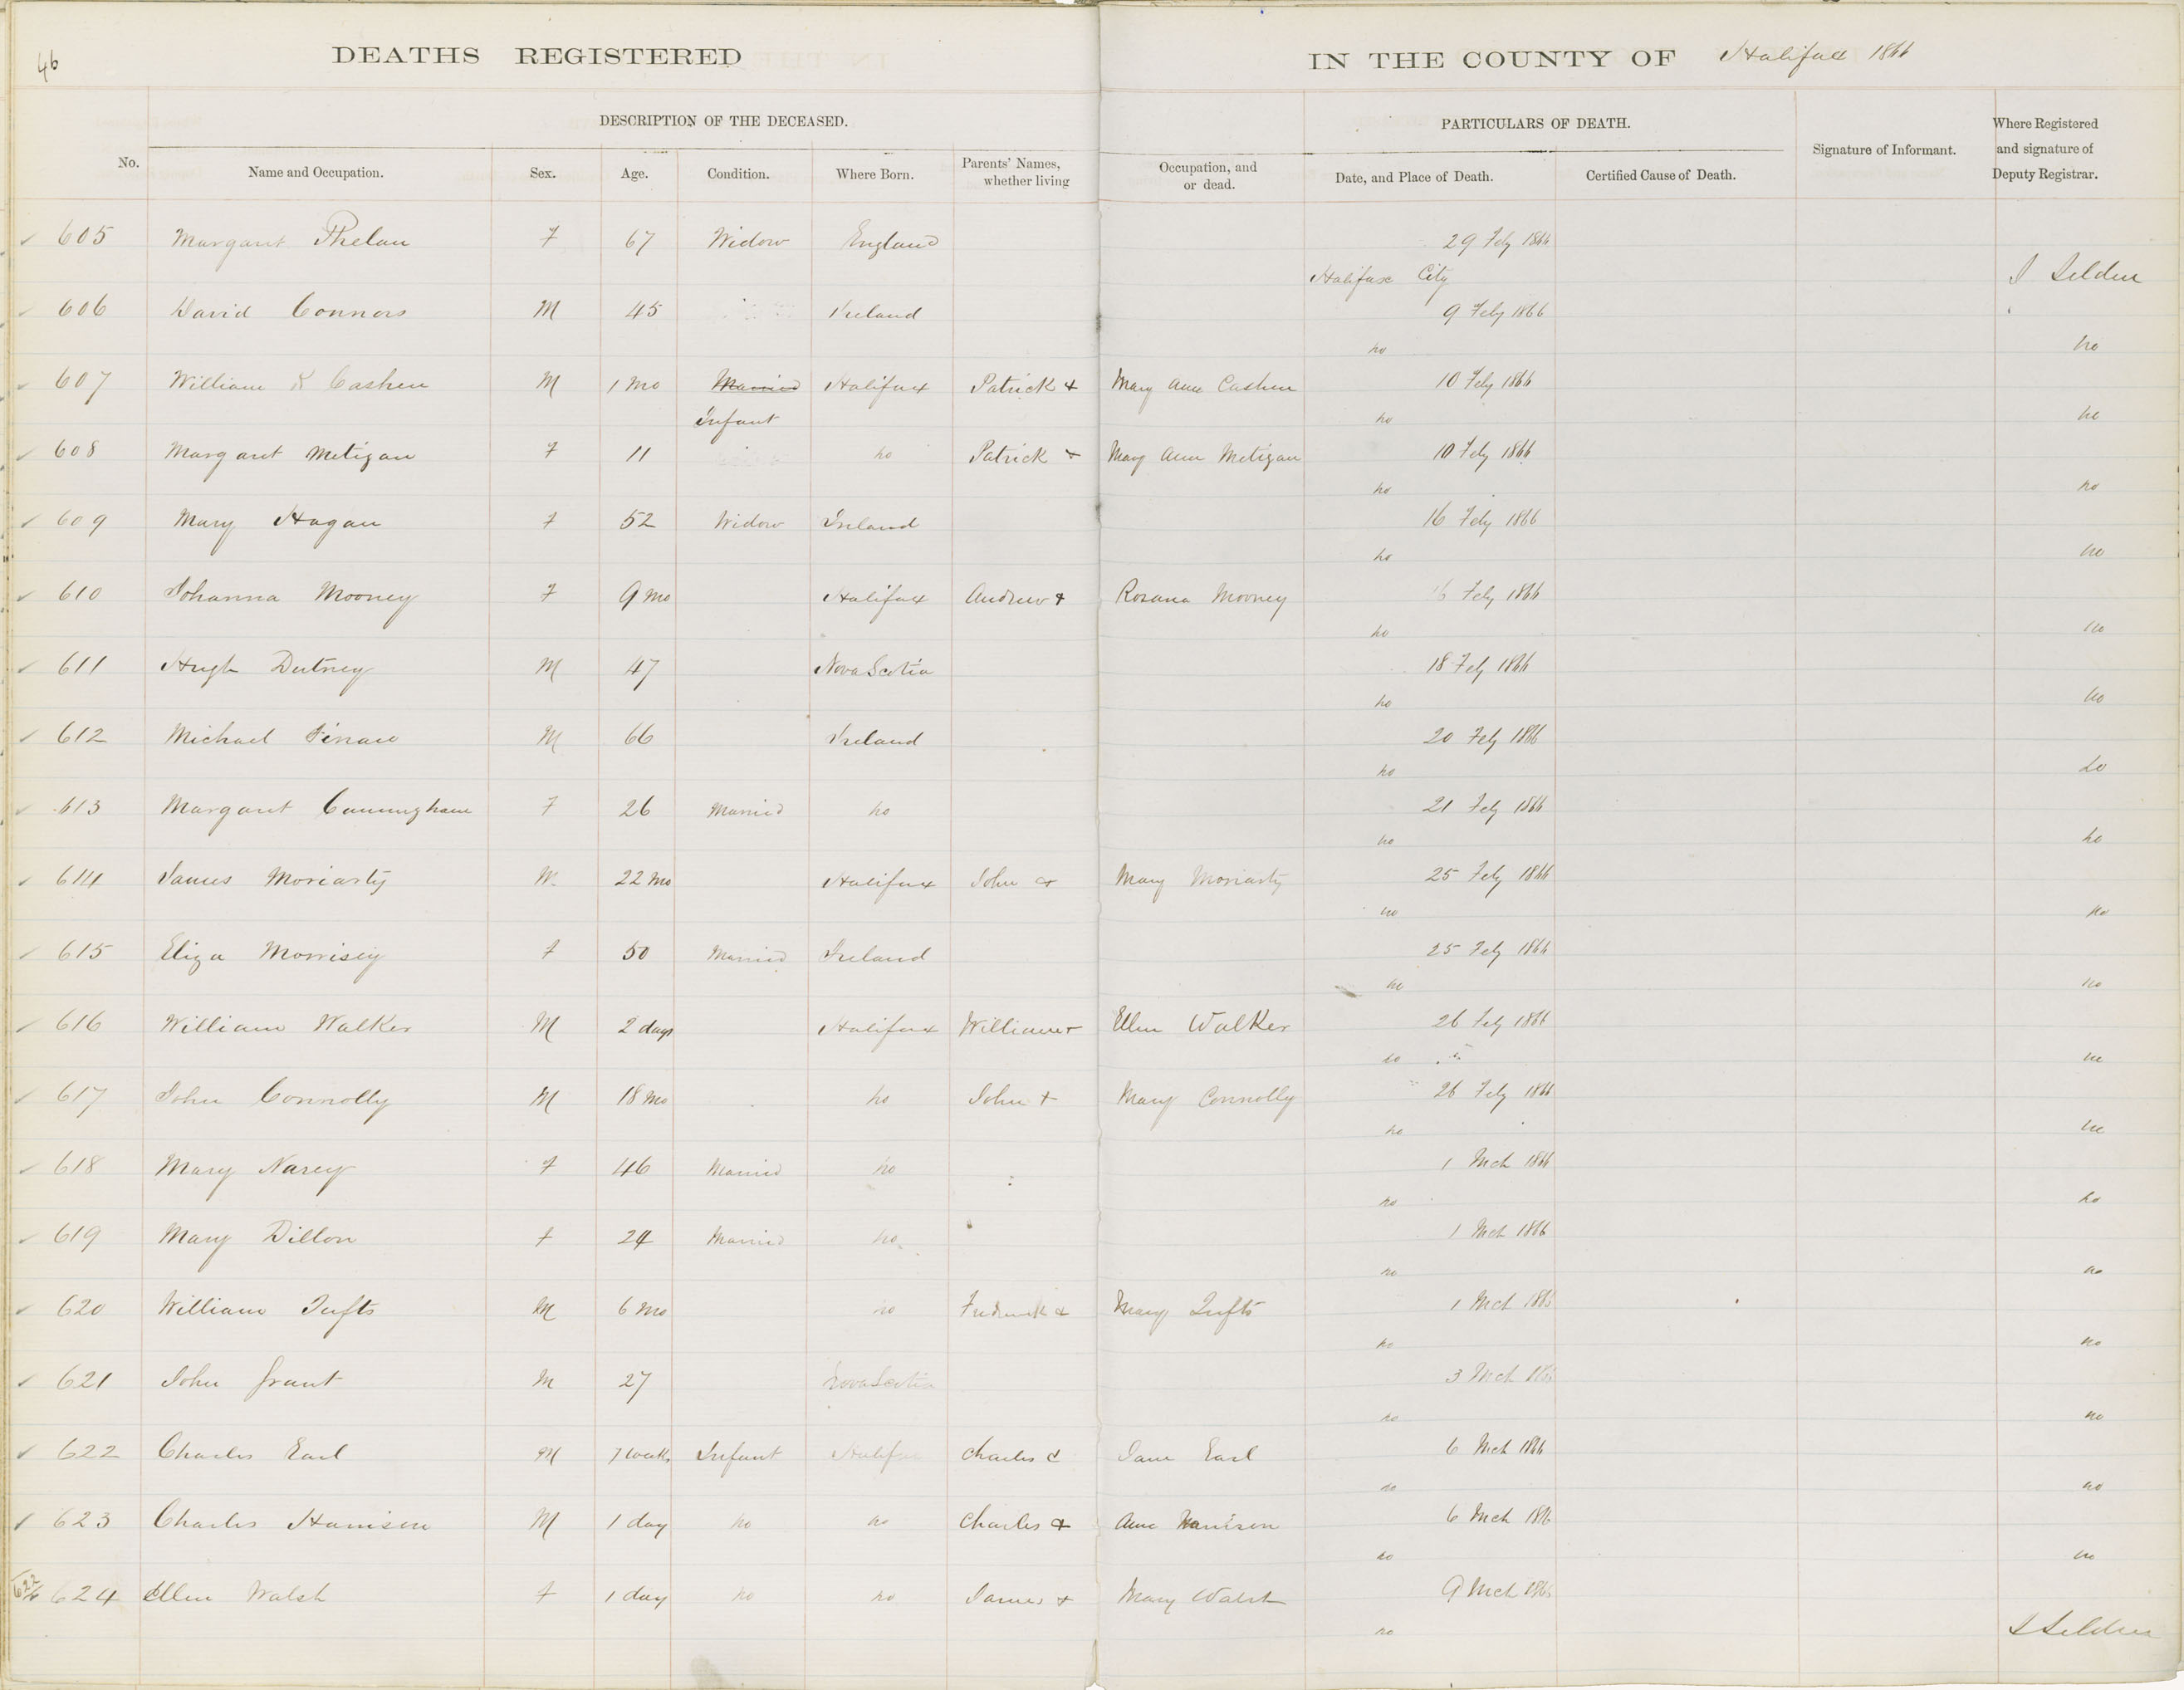 46
DEATHS REGISTERED IN THE COUNTY OF Halifax 1866
DESCRIPTION OF THE DECEASED. PARTICULARS OF DEATH.
No. Name and Occupation. Sex. Age. Condition. Where Born. Parents' Names, whether living Occupation, and or dead. Date, and Place of Death. Certified Cause of Death. Signature of Informant. Where Registered and signature of Deputy Registrar.
605 Margaret Phelan F 67 Widow England 29 Feby 1866
Halifax City J Selden
606 David Connors M 45 Ireland 9 Feby 1866
do do
607 William Cashen M 1 mo Married Halifax Patrick & Mary Ann Cashen 10 Feby 1866
Infant do do
608 Margaret Metigan F 11 do Patrick & Mary Ann Metigan 10 Feby 1866
do do
609 Mary Hagan F 52 Widow Ireland 16 Feby 1866
do do
610 Johanna Mooney F 9 mo Halifax Andrew & Rosana Mooney 16 Feby 1866
do do
611 Hugh Dutney M 47 Nova Scotia 18 Feby 1866
do do
612 Michael M 66 Ireland 20 Feby 1866
do do
613 Margaret Cunningham F 26 Married do 21 Feby 1866
do do
614 James Moriarty M 22 mo Halifax John & Mary Moriarty 25 Feby 1866
do do
615 Eliza Morrisey F 50 Married Ireland 25 Feby 1866
do do
616 William Walker M 2 days Halifax William & Ellen Walker 26 Feby 1866
do do
617 John Connolly M 18 mo do John & Mary Connolly 26 Feby 1866
do do
618 Mary Narey F 46 Married do 1 Mch 1866
do do
619 Mary Dillon F 24 Married do 1 Mch 1866
do do
620 William Tufts M 6 mo do Frederick & Mary Tufts 1 Mch 1866
do do
621 John Grant M 27 Nova Scotia 3 Mch 1866
do do
622 Charles Earl M 7 weeks Infant Halifax Charles & Jane Earl 6 Mch 1866
do do
623 Charles Harrison M 1 day do do Charles & Ann Harrison 6 Mch 1866
do do
624 Ellen Walsh F 1 day do do James & Mary Walsh 9 Mch 1866
do J Selden